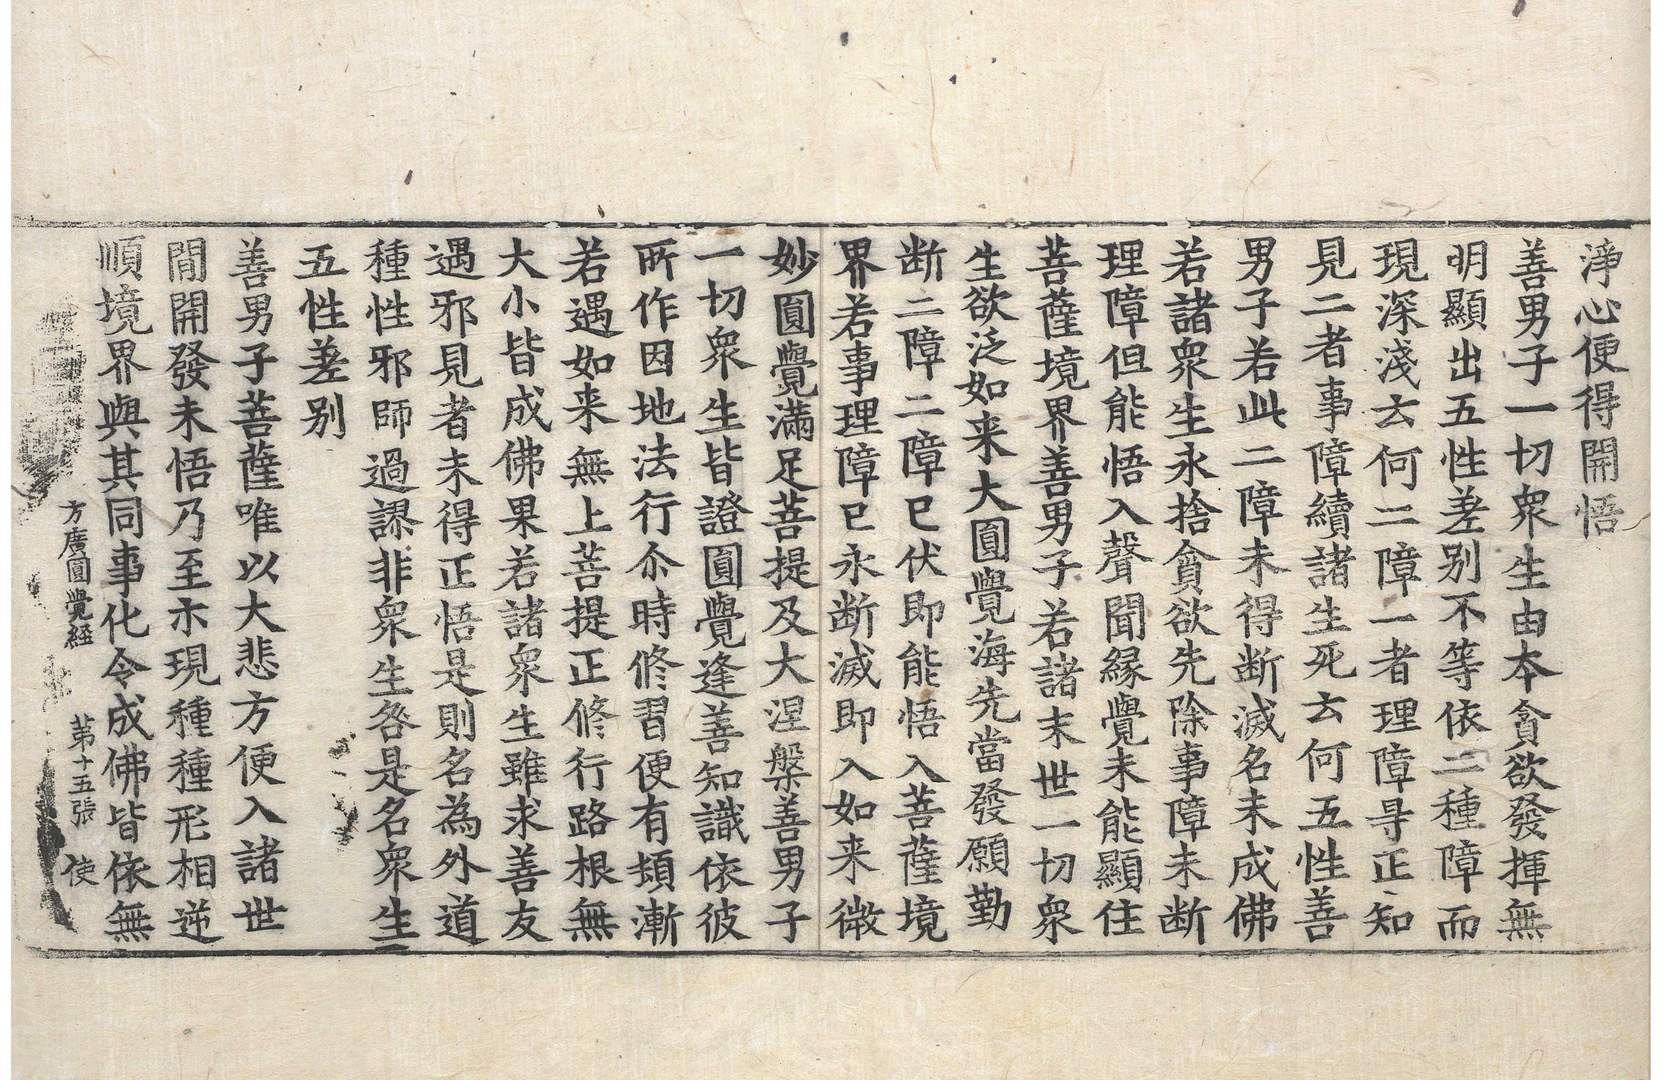 淨心便得開悟
善男子一切衆生由本貪欲發揮無
明顯出五性差别不等依二種障而
現深淺云何二障一者理障㝵正知
見二者事障續諸生死云何五性善
男子若此二障未得断滅名未成佛
若諸衆生永捨貪欲先除事障未断
理障但能悟入聲聞緣覺未能顯住
菩薩境界善男子若諸末世一切衆
生欲泛如来大圓覺海先當發願勤
断二障二障已伏即能悟入菩薩境
界若事理障已永断滅即入如来微
妙圓覺滿足菩提及大涅槃善男子
一切衆生皆證圓覺逢善知識依彼
所作因地法行尒時修習便有頓漸
若遇如来無上菩提正修行路根無
大小皆成佛果若諸衆生雖求善友
遇邪見者未得正悟是則名為外道
種性邪師過謬非衆生咎是名衆生
五性差别
善男子菩薩唯以大悲方便入諸世
間開發未悟乃至示現種種形相逆
順境界與其同事化令成佛皆依無
方廣圓覺経 苐十五張 使